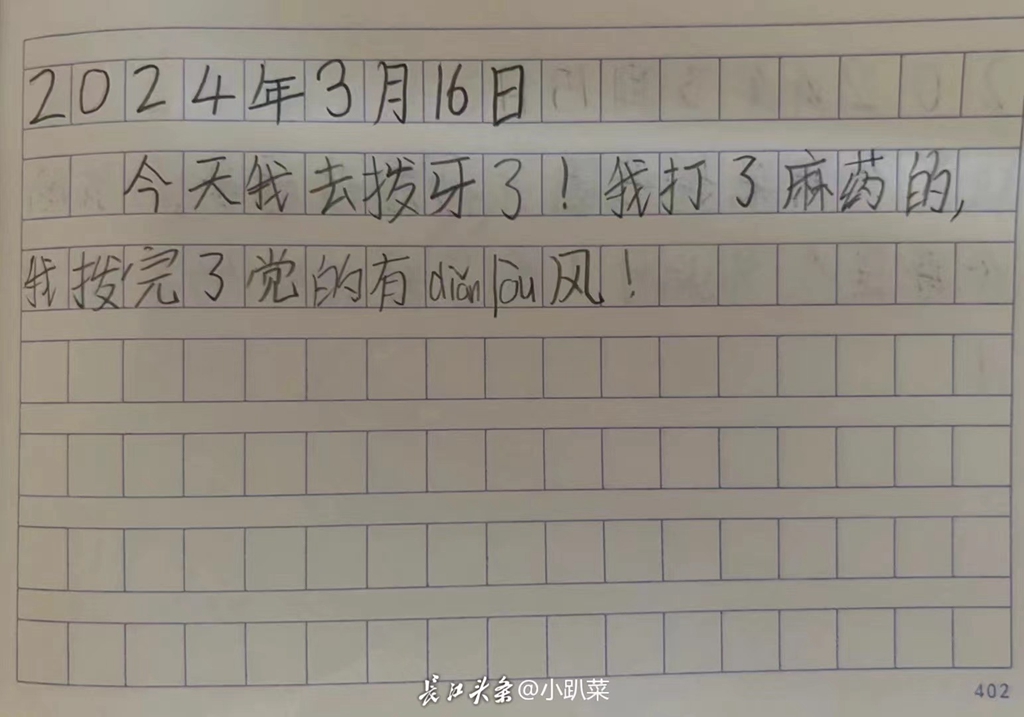 2024年3月16日
今天我去拨牙了！我打了麻药的，
我拨完了党的有diǎn lòu风！
长江头条@小趴菜
402